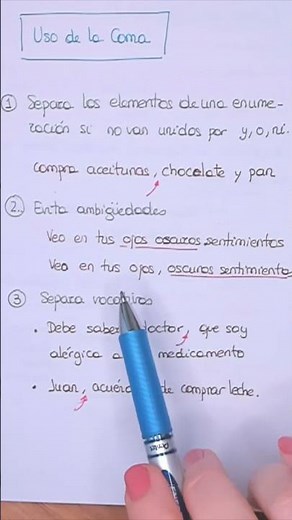 Uso de la Coma
1 Separa los elementos de una enume-
ración si no van unidos por y, o, ni.
compra aceitunas, chocolate y pan
2. Evita ambigüedades
Veo en tus ojos oscuros sentimientos
Veo en tus ojos, oscuros sentimiento
3 Separa vocativos
• Debe saber doctor, que soy
alérgica a medicamento
• Juan, de comprar leche.